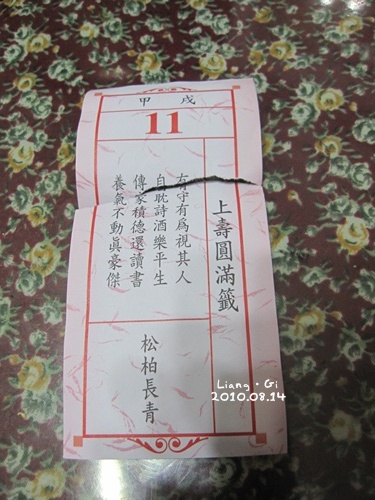 甲戌
11
上壽圓滿籤
有守有為視其人
自耽詩酒樂平生
傳家積德還讀書
養氣不動真豪傑
松柏長青
Liang·Gi
2010.08.14